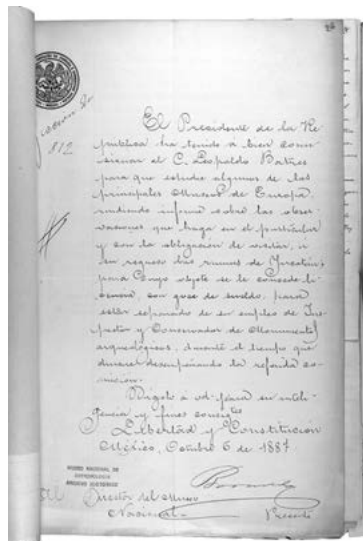 812
El Presidente de la Re-
pública ha tenido á bien comi-
sionar al C. Leopoldo Batres
para que estudie algunos de los
principales Museos de Europa,
rindiendo informe sobre las obser-
vaciones que haga en el particular
y con la obligacion de visitar, á
su regreso las ruinas de Yucatan;
para cuyo objeto se le concede li-
cencia, con goce de sueldo, para
estar separado de su empleo de Ins-
pector y Conservador de Monumentos
arqueológicos, durante el tiempo que
durare desempeñando la referida co-
mision.
Dígolo á vd. para su inteli-
gencia y fines consigtes
Libertad y Constitucion
México, Octubre 6 de 1887.
MUSEO NACIONAL DE
ANTROPOLOGIA
ARCHIVO HISTORICO
Al
Director del Museo
Nacional.
Presente